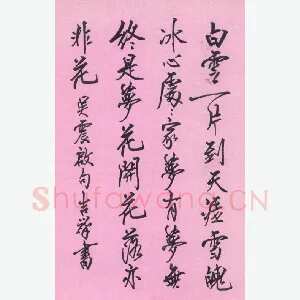 白雲一片到天涯雪魄
冰心處處家夢有夢無
終是夢花開花落亦
非花 吳震啟句 吉祥書
ShufaWang.CN